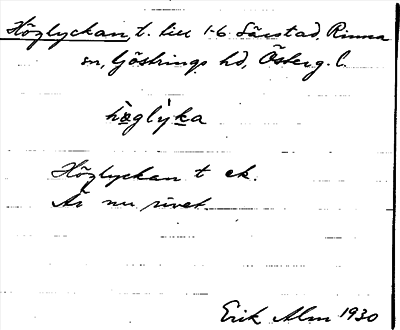 Höglyckan, t. till 1-6 Särstad, Rinna
sn, Göstrings hd, Österg. l.
hö̀glỳka
Höglyckan t ek.
Är nu rivet.
Erik Alm 1930